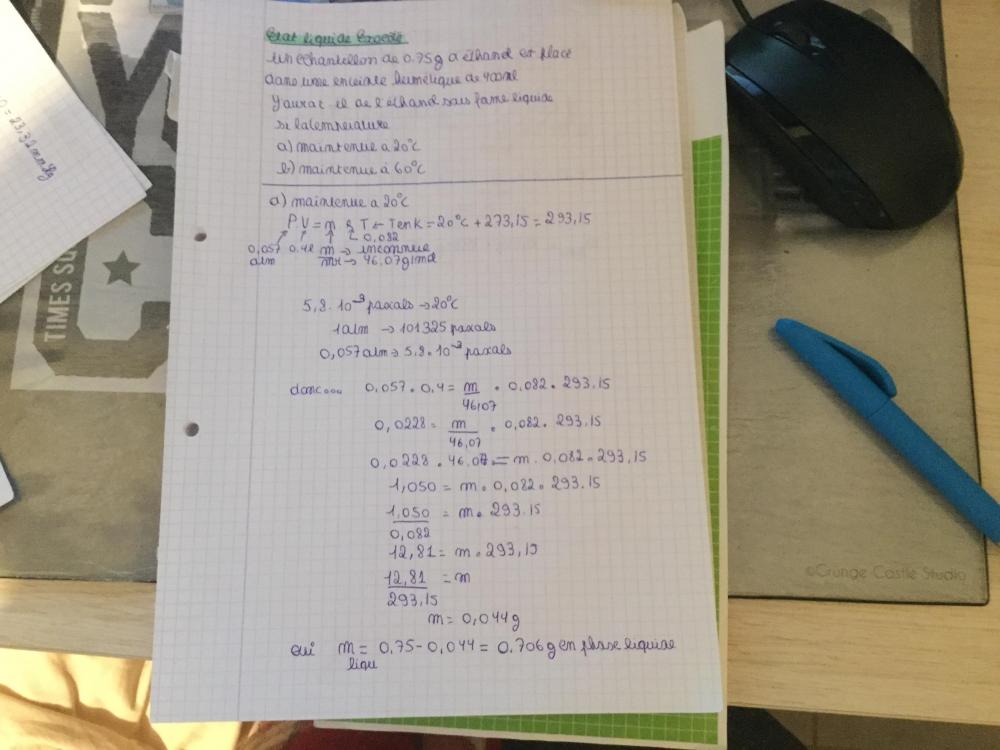 Etat liquide Exercice
un échantillon de 0.75g d'éthanol est placé
dans une enceinte hermétique de 400ml
Y aurat-il de l'éthanol sous forme liquide
si la température
a) maintenue a 20°C
b) maintenue à 60°C
a) maintenue a 20°C
P.V = n R T ← T en K = 20°C + 273,15 = 293,15
0,082
0,057 0.4l m → inconnue
atm mr → 46.07g/mol
5,8. 10⁻³ pascals → 20°C
1atm → 101325 pascals
0,057 atm → 5.8 . 10⁻³ pascals
donc... 0,057 . 0.4 = m/46,07 . 0,082 . 293.15
0,0228 = m/46,07 . 0,082. 293,15
0,0228 . 46.07 = m . 0,082 . 293,15
1,050 = m . 0,082 . 293.15
1,050/0,082 = m . 293.15
12,81 = m . 293,15
12,81/293,15 = m
m = 0,044g
oui m = 0,75 - 0,044 = 0.706g en phase liquide
liqu
0 = 23,32 mmHg
TIMES SQ
©Grunge Castle Studio